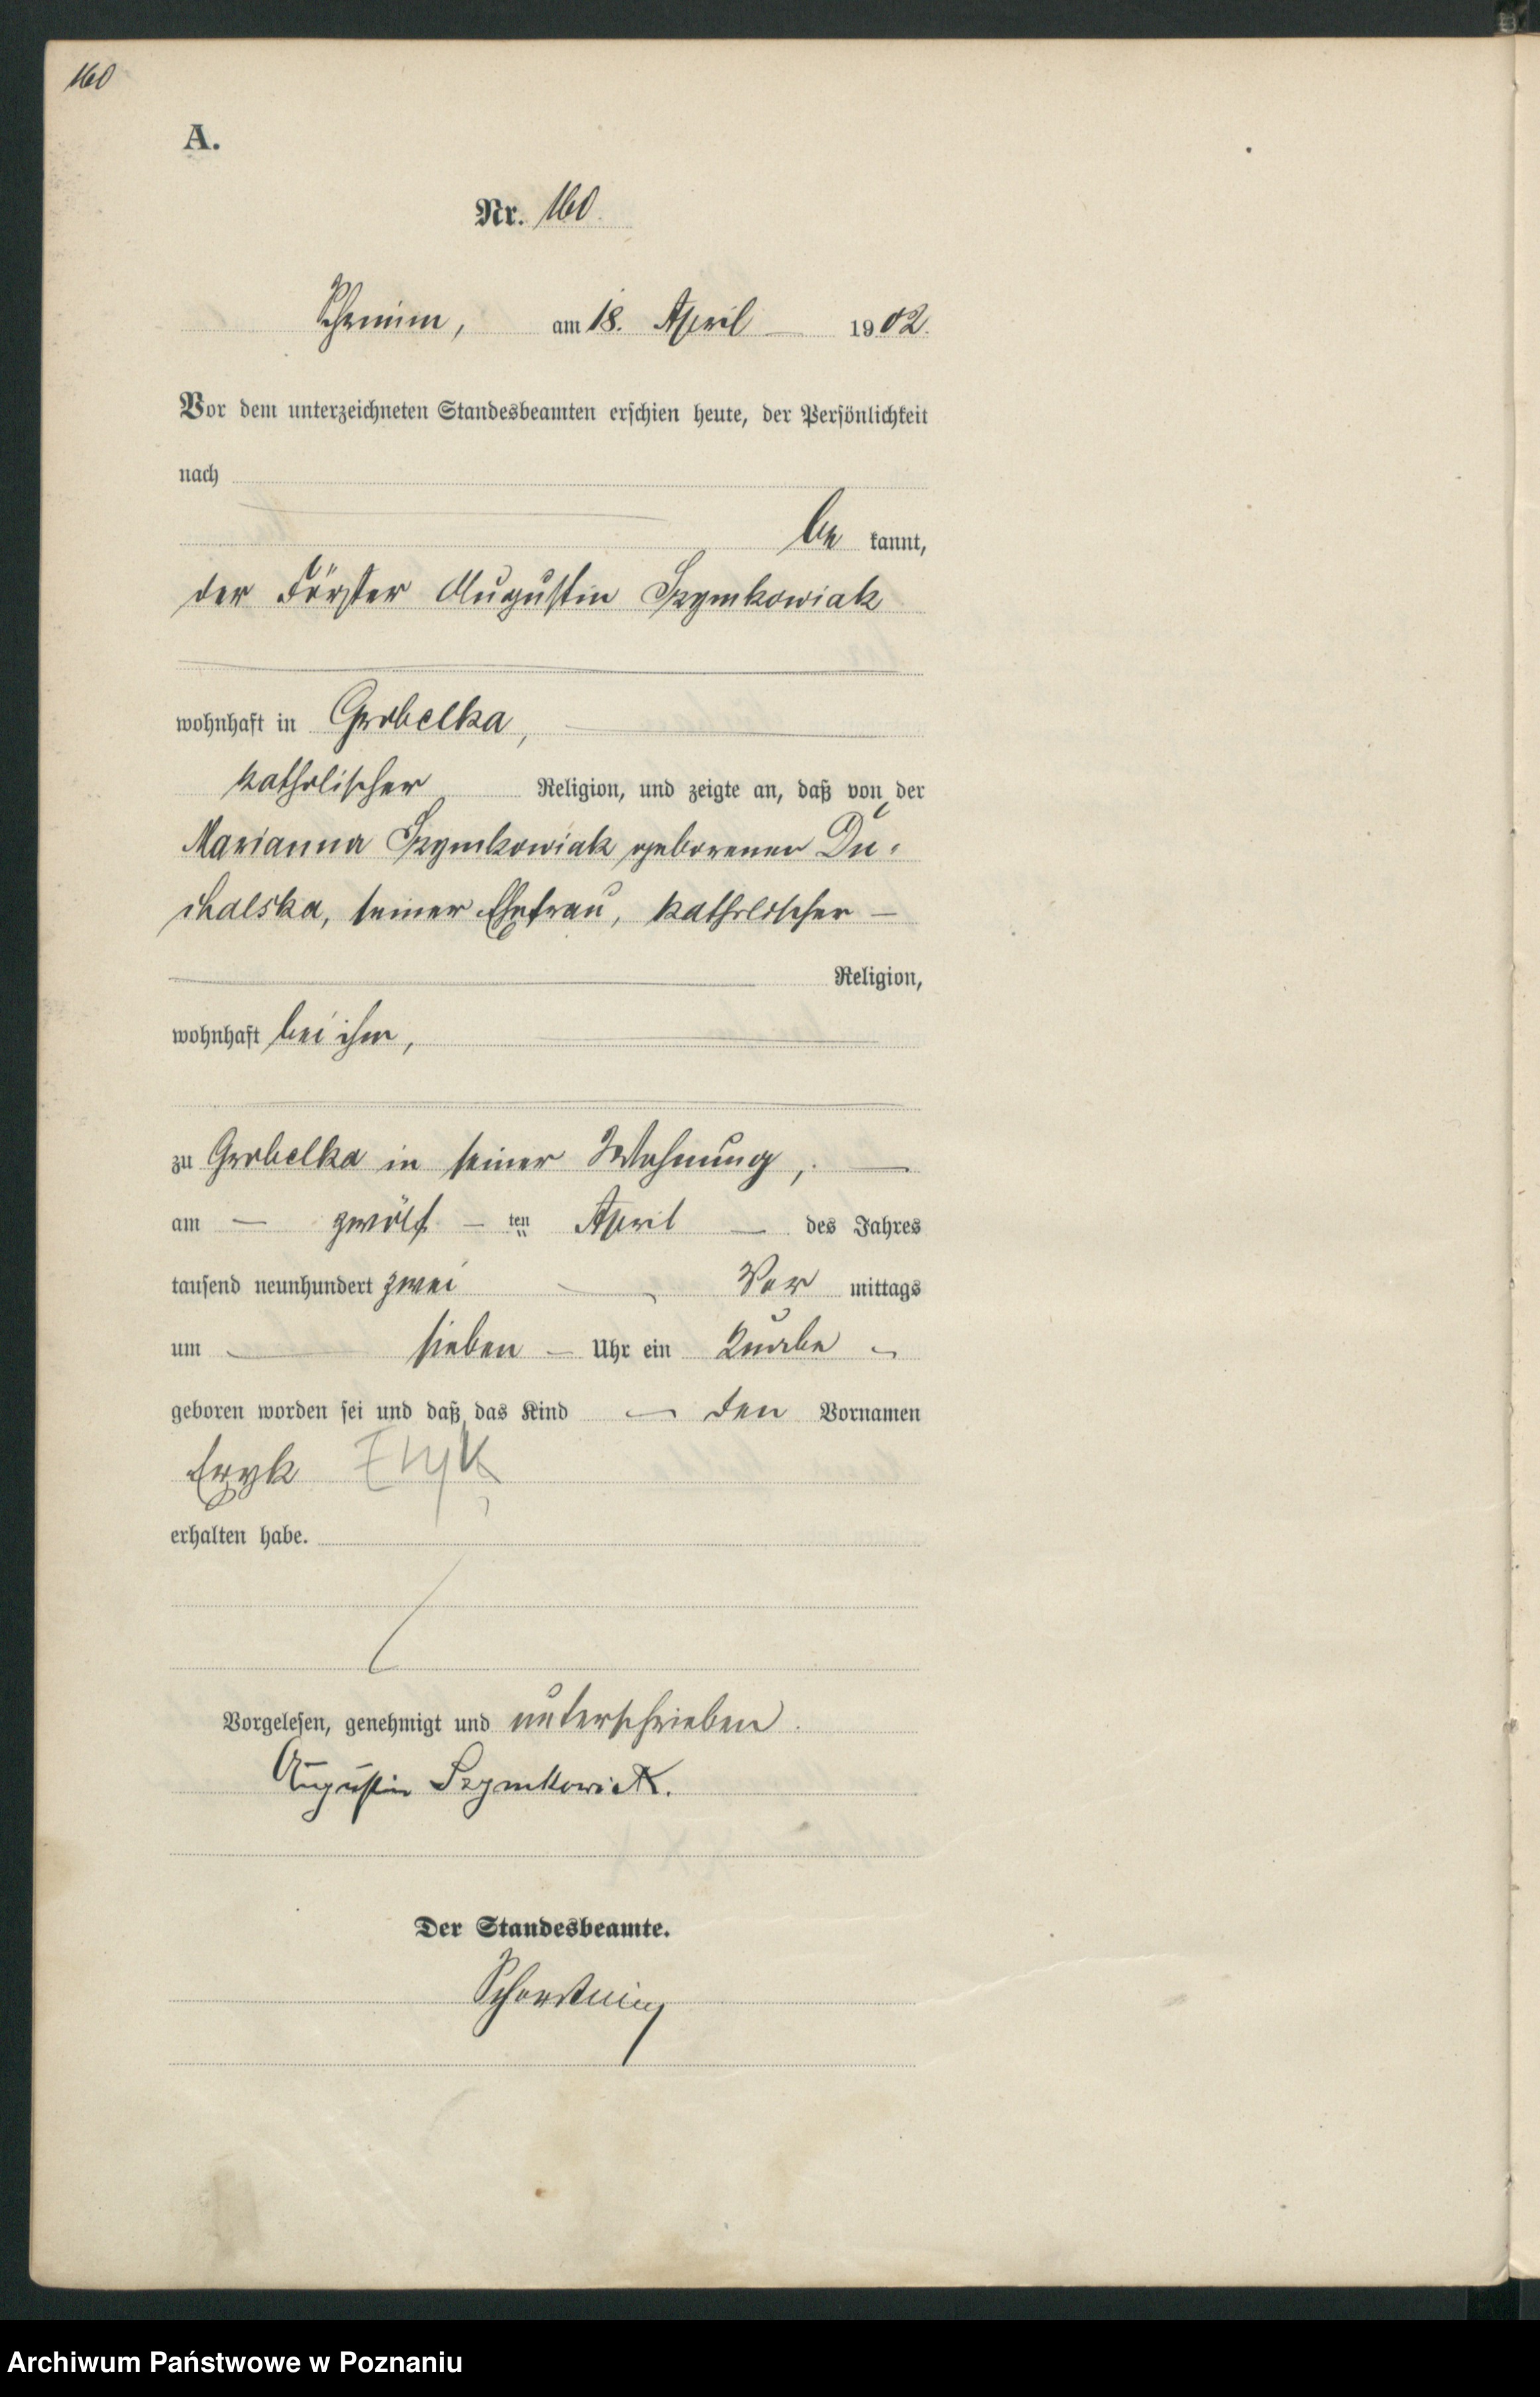 160
A.
Nr. 160.
Schrimm, am 18. April 1902.
Vor dem unterzeichneten Standesbeamten erschien heute, der Persönlichkeit
nach
be kannt,
der Förster Augustin Szymkowiak
wohnhaft in Grobelka,
katholischer Religion, und zeigte an, daß von der
Marianna Szymkowiak geborenen Du-
chalska, seiner Ehefrau, katholischer —
Religion,
wohnhaft bei ihm,
zu Grobelka in seiner Wohnung, —
am — zwölf — ten April — des Jahres
tausend neunhundert zwei — Vor mittags
um — sieben — Uhr ein Knabe —
geboren worden sei und daß das Kind — den Vornamen
Eryk Eryk
erhalten habe.
Vorgelesen, genehmigt und unterschrieben.
Augustin Szymkowiak.
Der Standesbeamte.
Archiwum Państwowe w Poznaniu